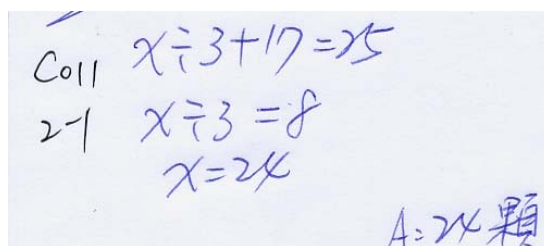 C011 x÷3+17=25
2-1 x÷3=8
x=24
A:24顆